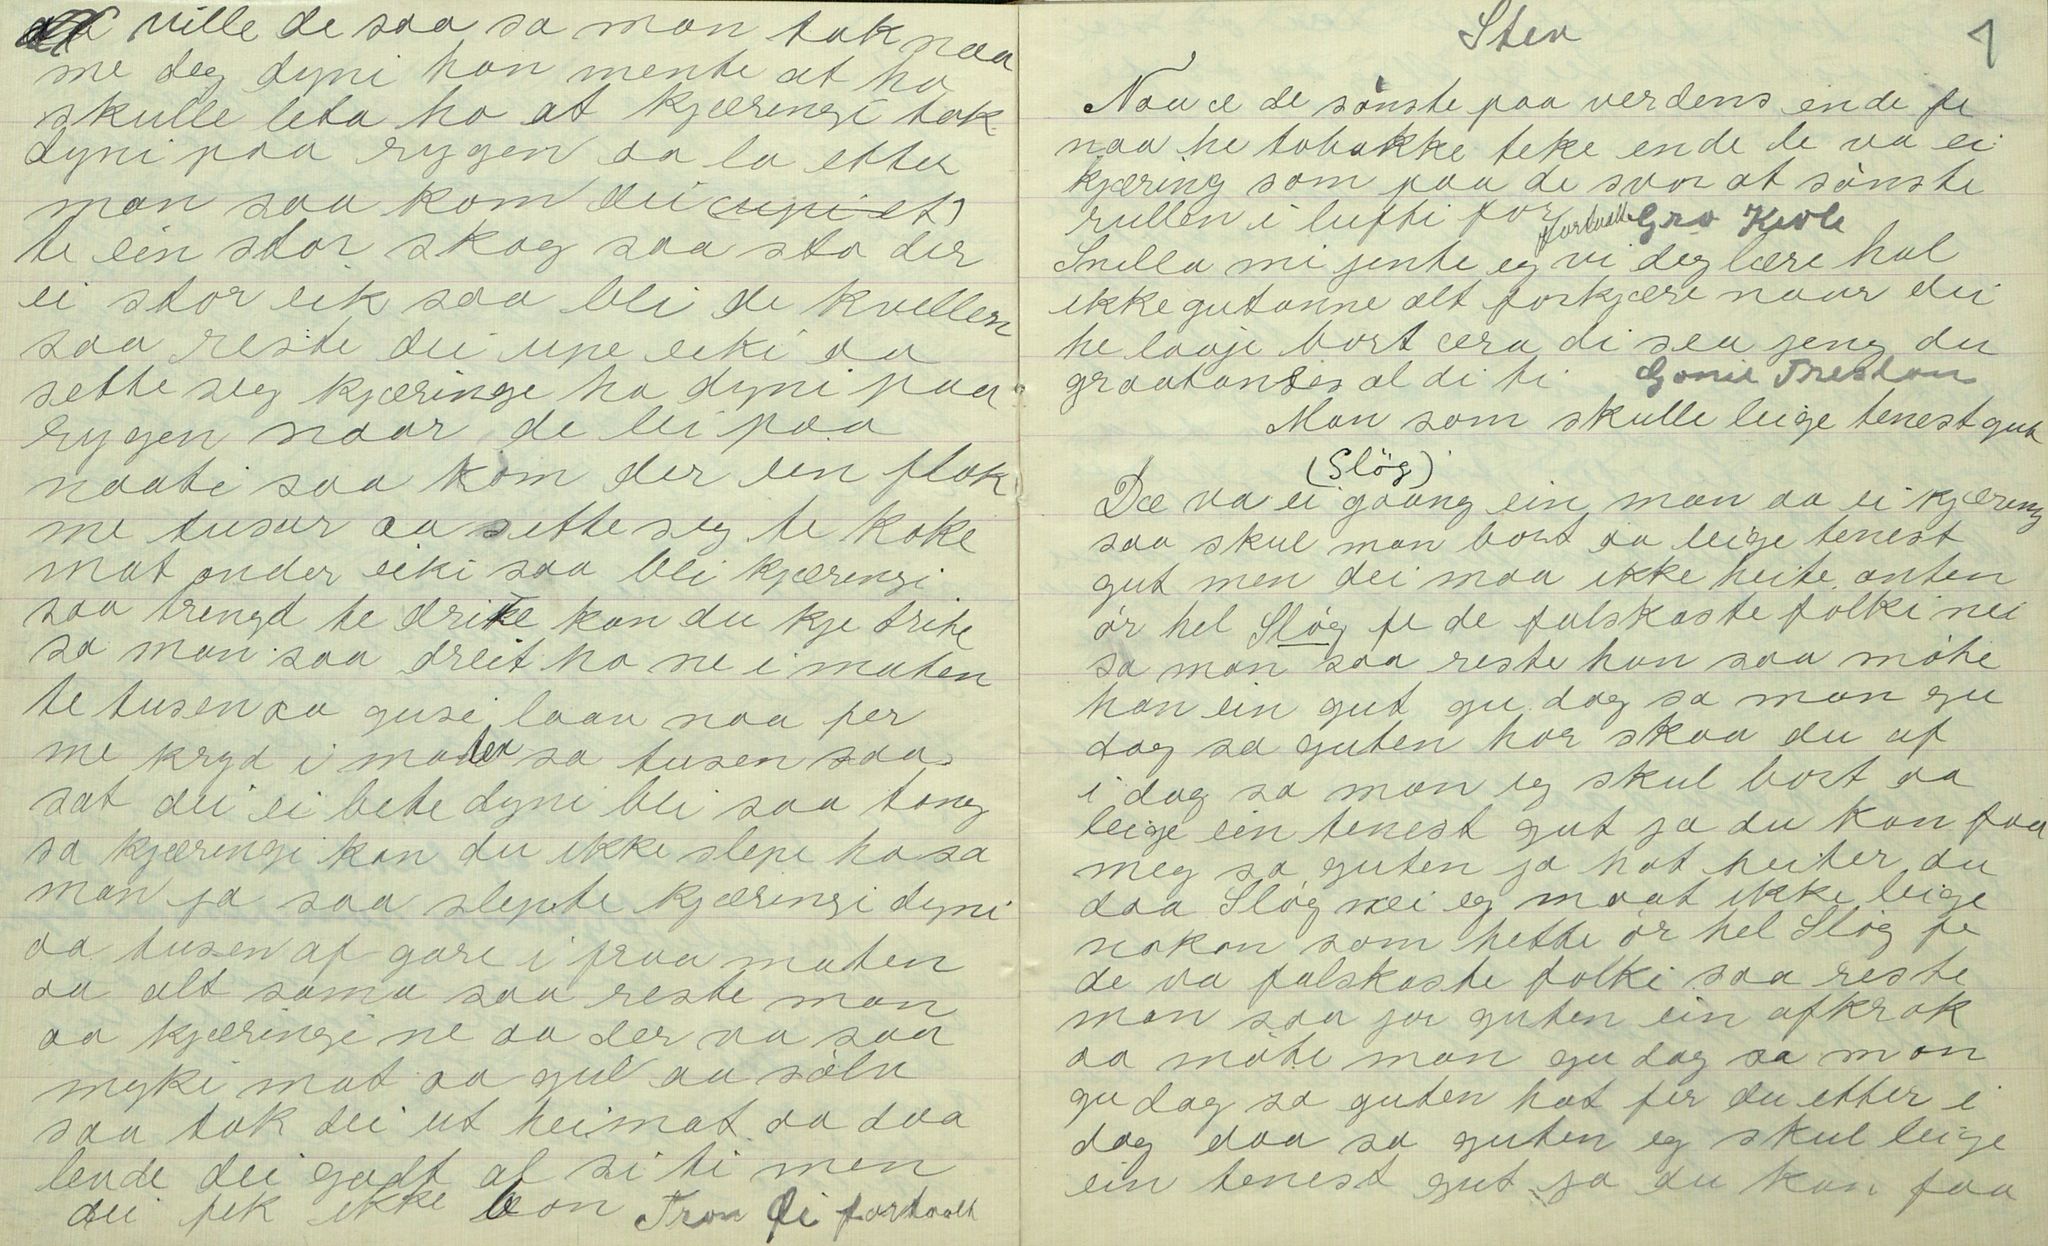 ville de saa sa man tak naa
me deg dyni han mente at ho
skulle leta ho at kjæringi tok
dyni paa rygen aa la etter
man saa kom dei
te ein stor skog saa sto der
ei stor eik saa blei de kvellen
saa reste dei upe eiki aa
sette seg kjæringe ha dyni paa
rygen naar de lei paa
naati saa kom der ein flok
me tusar aa sette seg te koke
mat onder eiki saa blei kjæringi
saa trengd te drite kan du kje trite
sa man saa dreit ho ne i maten
te tusen aa gusi laan naa per
me kryd i maten sa tusen saa
sat dei ei bete dyni blei saa tong
sa kjæringi kan du ikke slepe ho sa
man ja saa slepte kjæringi dyni
aa tusen af gare i fraa maten
aa alt sama saa reste man
aa kjæringi ne aa der va saa
myki mat aa gul aa sölv
saa tok dei ut heimat aa daa
levde dei godt al si ti men
dei fek ikke bon Tron Li fortaalt
Stev 1
Naa æ de sönste paa verdens ende fe
naa he tobakke teke ende de va ei
kjæring som paa de svor at sönste
rullen i lufti for fortaalt Gro Kvole
Snilla mi jente eg vi deg lære hal
ikke gutanne alt forkjære naar dei
he laaje bort æra di sea jeng du
graatandes al di ti Gonil Trestøen
Man som skulle leige tenestgut
(Slög)
Dæ va ei gaang ein man aa ei kjæreng
saa skul man bort aa leige tenest
gut men dei maa ikke heite anten
ör hel Slög fe de falskaste folki nei
sa man saa reste han saa möte
han ein gut gu dag sa man gu
dag sa guten hor skaa du af
i dag sa man eg skul bort aa
leige ein tenest gut ja du kan faa
meg sa guten ja hot heiter du
daa Slög nei eg maat ikke leige
nokon som hette ör hel Slög fe
de va falskaste folki saa reste
man saa jor guten ein afkrok
aa möte man gu dag sa man
gu dag sa guten hot fer du etter i
dag daa sa guten eg skul leige
ein tenest gut ja du kan faa